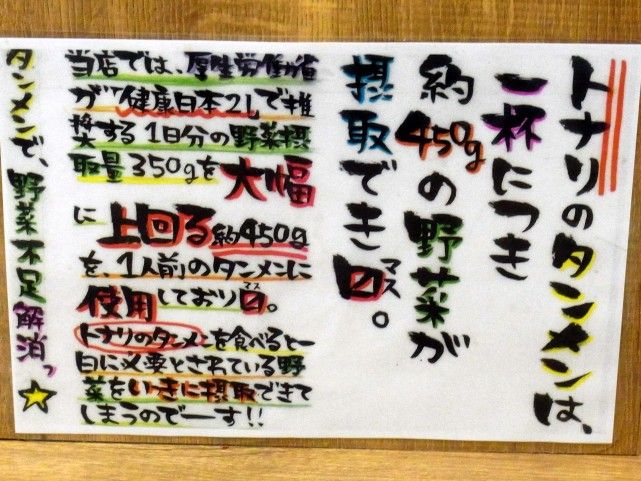 トナリのタンメンは、
一杯につき
約450gの野菜が
摂取でき〼。
マス
当店では、厚生労働省
が"健康日本21"で推
奨する1日分の野菜摂
取量350gを大幅
に上回る約450g
を、1人前のタンメンに
使用しており〼。
マス
トナリのタンメンを食べると一
日に必要とされている野
菜をいっきに摂取できて
しまうのでーす!!
タンメンで、野菜不足解消っ☆